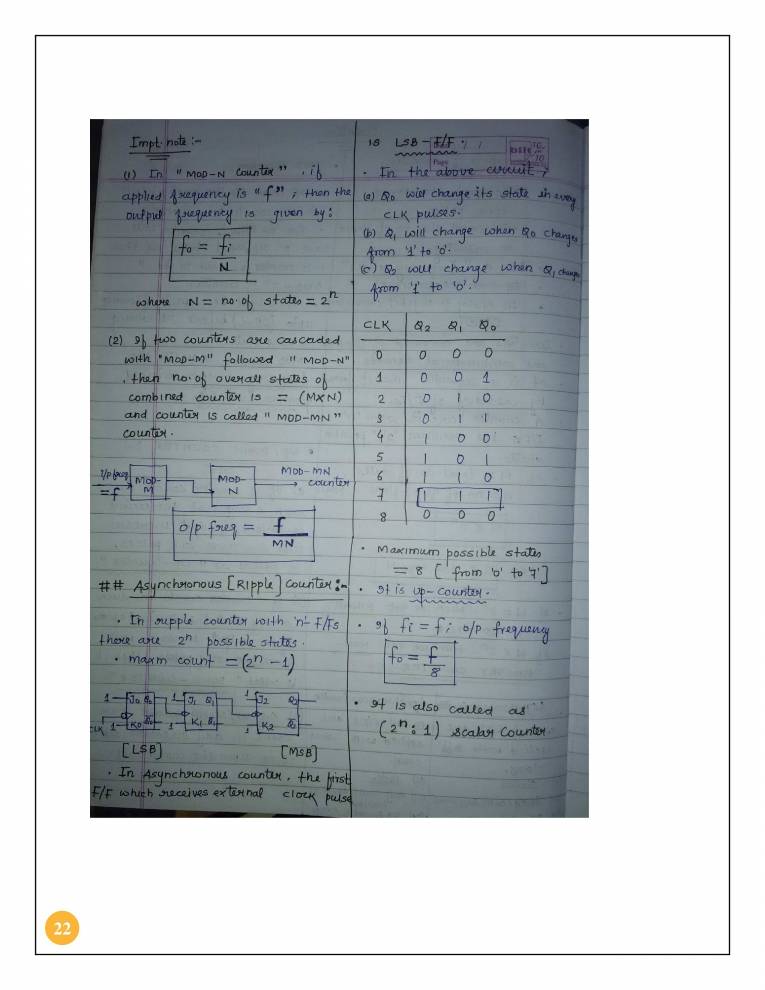 Impt. note :-
(1) In "MOD-N Counter", if
applied frequency is "f", then the
output frequency is given by:
f₀ = fᵢ/N
where N = no. of states = 2ⁿ
(2) If two counters are cascaded
with "MOD-M" followed "MOD-N"
, then no. of overall states of
combined counter is = (M×N)
and counter is called "MOD-MN"
counter.
i/p freq
= f
MOD-
M
MOD-
N
MOD-MN
counter
o/p freq = f/MN
## Asynchronous [Ripple] Counter :-
• In ripple counter with 'n'- F/Fs
there are 2ⁿ possible states.
• maxm count = (2ⁿ - 1)
1 J₀ Q₀ 1 J₁ Q₁ 1 J₂ Q₂
CLK 1 K₀ Q̅₀ 1 K₁ Q̅₁ 1 K₂ Q̅₂
[LSB] [MSB]
• In Asynchronous counter, the first
F/F which receives external clock pulse
is LSB - F/F.
Page
• In the above circuit,
(a) Q₀ will change its state in every
CLK pulses.
(b) Q₁ will change when Q₀ changes
from '1' to '0'.
(c) Q₂ will change when Q₁ change
from '1' to '0'.
CLK Q₂ Q₁ Q₀
0 0 0 0
1 0 0 1
2 0 1 0
3 0 1 1
4 1 0 0
5 1 0 1
6 1 1 0
7 1 1 1
8 0 0 0
• Maximum possible states
= 8 [from '0' to '7']
• It is up-counter.
• If fᵢ = f; o/p frequency
f₀ = f/8
• It is also called as
(2ⁿ : 1) scalar counter.
22